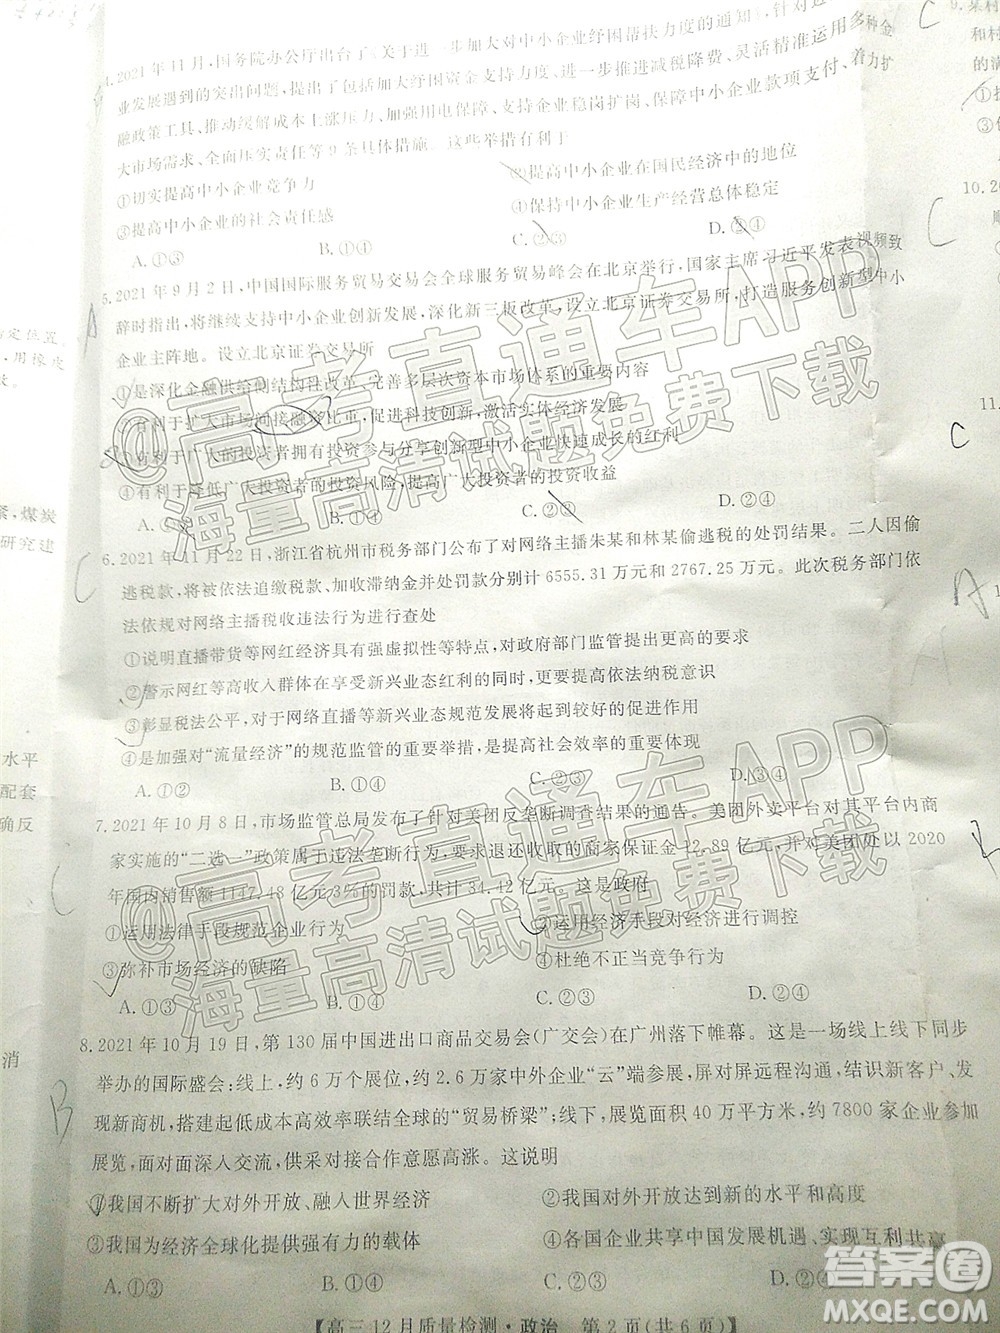 4.2021年11月,国务院办公厅出台了《关于进一步加大对中小企业纾困帮扶力度的通知》,针对
业发展遇到的突出问题,提出了包括加大纾困资金支持力度、进一步减税降费、灵活精准运用多种金
融政策工具、推动缓解成本上涨压力、加强用电保障、支持企业稳岗扩岗、保障中小企业款项支付、着力扩
大市场需求、全面压实责任等9条具体措施。这些举措有利于
①切实提高中小企业竞争力
②提高中小企业在国民经济中的地位
③提高中小企业的社会责任感
④保持中小企业生产经营总体稳定
A.①③ B.①④ C.②③ D.②④
5.2021年9月2日,中国国际服务贸易交易会全球服务贸易峰会在北京举行,国家主席习近平发表视频致
辞时指出,将继续支持中小企业创新发展,深化新三板改革,设立北京证券交易所,打造服务创新型中小
企业主阵地。设立北京证券交易所
①是深化金融供给侧结构性改革、完善多层次资本市场体系的重要内容
②有利于扩大市场间接融资比重,促进科技创新,激活实体经济发展
③有利于广大的投资者拥有投资参与分享创新型中小企业快速成长的红利
④有利于降低广大投资者的投资风险,提高广大投资者的投资收益
A.①③ B.①④ C.②③ D.②④
6.2021年11月22日,浙江省杭州市税务部门公布了对网络主播朱某和林某偷逃税的处罚结果。二人因偷
逃税款,将被依法追缴税款、加收滞纳金并处罚款分别计6555.31万元和2767.25万元。此次税务部门依
法依规对网络主播税收违法行为进行查处
①说明直播带货等网红经济具有很强虚拟性等特点,对政府部门监管提出更高的要求
②警示网红等高收入群体在享受新兴业态红利的同时,更要提高依法纳税意识
③彰显税法公平,对于网络直播等新兴业态规范发展将起到较好的促进作用
④是加强对“流量经济”的规范监管的重要举措,是提高社会效率的重要体现
A.①② B.①④ C.②③ D.③④
7.2021年10月8日,市场监管总局发布了针对美团反垄断调查结果的通告。美团外卖平台对其平台内商
家实施的“二选一”政策属于违法垄断行为,要求退还收取的商家保证金12.89亿元,并对美团处以2020
年国内销售额1147.48亿元3%的罚款,共计34.42亿元。这是政府
①运用法律手段规范企业行为
②运用经济手段对经济进行调控
③弥补市场经济的缺陷
④杜绝不正当竞争行为
A.①③ B.①④ C.②③ D.②④
8.2021年10月19日,第130届中国进出口商品交易会(广交会)在广州落下帷幕。这是一场线上线下同步
举办的国际盛会:线上,约6万个展位,约2.6万家中外企业“云”端参展,屏对屏远程沟通,激活新需求、发
现新商机,搭建起低成本高效率联结全球的“贸易桥梁”;线下,展览面积40万平方米,约7800家企业参加
展览,面对面深入交流,供采对接合作意愿高涨。这说明
①我国不断扩大对外开放、融入世界经济
②我国对外开放达到新的水平和高度
③我国为经济全球化提供强有力的载体
④各国企业共享中国发展机遇、实现互利共赢
A.①③ B.①④ C.②③ D.②④
【高三12月质量检测·政治 第2页(共6页)】
定位置。
,用橡皮
效。
紧,煤炭
研究建
水平
配套
确反
消
10.20
11.
@高考直通车APP
海量高清试题免费下载
@高考直通车APP
海量高清试题免费下载
答案圈
MXQE.COM